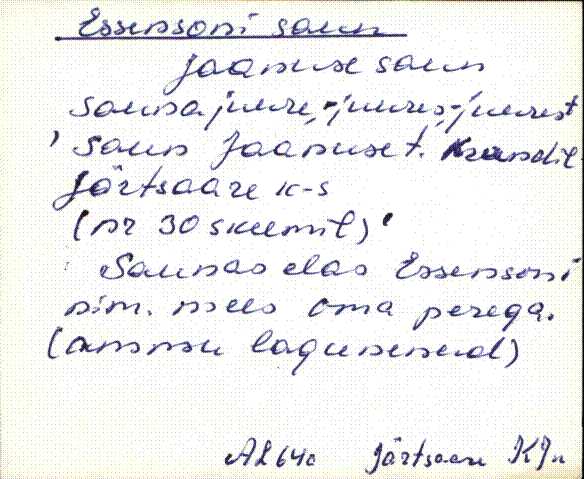 Essensoni saun
Jaanuse saun
sauna juure, -juures, -juurest
' saun Jaanuse t. krundil
Järtsaare k-s
(nr 30 skeemil) '
Saunas elas Essensoni
nim. mees oma perega.
(ammu lagunenud)
Järtsaare KJn